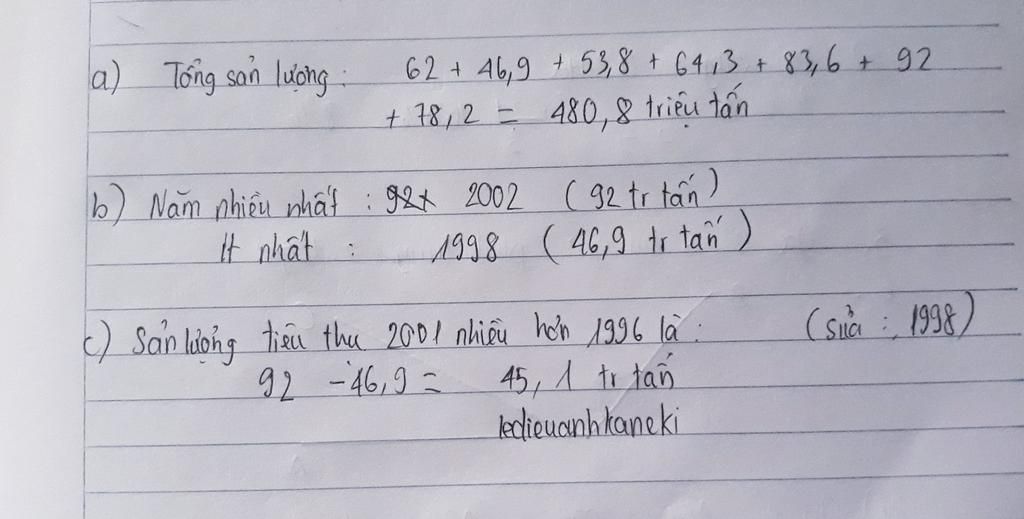 a) Tổng sản lượng : 62 + 46,9 + 53,8 + 64,3 + 83,6 + 92
+ 78,2 = 480,8 triệu tấn
b) Năm nhiều nhất : 2002 (92 tr tấn)
Ít nhất : 1998 (46,9 tr tấn)
c) Sản lượng tiêu thu 2001 nhiều hơn 1996 là : (sửa : 1998)
92 - 46,9 = 45,1 tr tấn
ledieuanhkaneki